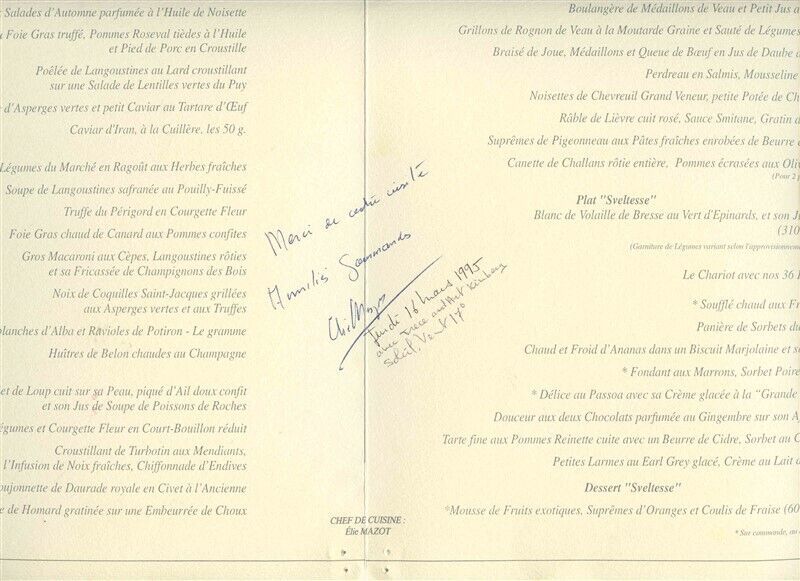 Salades d'Automne parfumée à l'Huile de Noisette
Foie Gras truffé, Pommes Roseval tièdes à l'Huile
et Pied de Porc en Croustille
Poêlée de Langoustines au Lard croustillant
sur une Salade de Lentilles vertes du Puy
d'Asperges vertes et petit Caviar au Tartare d'Œuf
Caviar d'Iran, à la Cuillère. les 50 g.
Légumes du Marché en Ragoût aux Herbes fraîches
Soupe de Langoustines safranée au Pouilly-Fuissé
Truffe du Périgord en Courgette Fleur
Foie Gras chaud de Canard aux Pommes confites
Gros Macaroni aux Cèpes, Langoustines rôties
et sa Fricassée de Champignons des Bois
Noix de Coquilles Saint-Jacques grillées
aux Asperges vertes et aux Truffes
blanches d'Alba et Ravioles de Potiron - Le gramme
Huîtres de Belon chaudes au Champagne
et de Loup cuit sur sa Peau, piqué d'Ail doux confit
et son Jus de Soupe de Poissons de Roches
égumes et Courgette Fleur en Court-Bouillon réduit
Croustillant de Turbotin aux Mendiants,
l'Infusion de Noix fraîches, Chiffonnade d'Endives
oujonnette de Daurade royale en Civet à l'Ancienne
e de Homard gratinée sur une Embeurrée de Choux
Merci de cette visite
Amitiés Gourmandes
Elie Mazot
Jeudi 16 mars 1995
avec Irene and Art
Soleil, Vent 17°
CHEF DE CUISINE :
Élie MAZOT
Boulangère de Médaillons de Veau et Petit Jus a
Grillons de Rognon de Veau à la Moutarde Graine et Sauté de Légumes
Braisé de Joue, Médaillons et Queue de Bœuf en Jus de Daube
Perdreau en Salmis, Mousseline
Noisettes de Chevreuil Grand Veneur, petite Potée de Ch
Râble de Lièvre cuit rosé, Sauce Smitane, Gratin d
Suprêmes de Pigeonneau aux Pâtes fraîches enrobées de Beurre d
Canette de Challans rôtie entière, Pommes écrasées aux Oli
(Pour 2 p
Plat "Sveltesse"
Blanc de Volaille de Bresse au Vert d'Epinards, et son J
(310
(Garniture de Légumes variant selon l'approvisionnemen
Le Chariot avec nos 36
* Soufflé chaud aux Fr
Panière de Sorbets du
Chaud et Froid d'Ananas dans un Biscuit Marjolaine et s
* Fondant aux Marrons, Sorbet Poire
* Délice au Passoa avec sa Crème glacée à la "Grande
Douceur aux deux Chocolats parfumée au Gingembre sur son A
Tarte fine aux Pommes Reinette cuite avec un Beurre de Cidre, Sorbet au C
Petites Larmes au Earl Grey glacé, Crème au Lait d
Dessert "Sveltesse"
*Mousse de Fruits exotiques, Suprêmes d'Oranges et Coulis de Fraise (60
* Sur commande, au